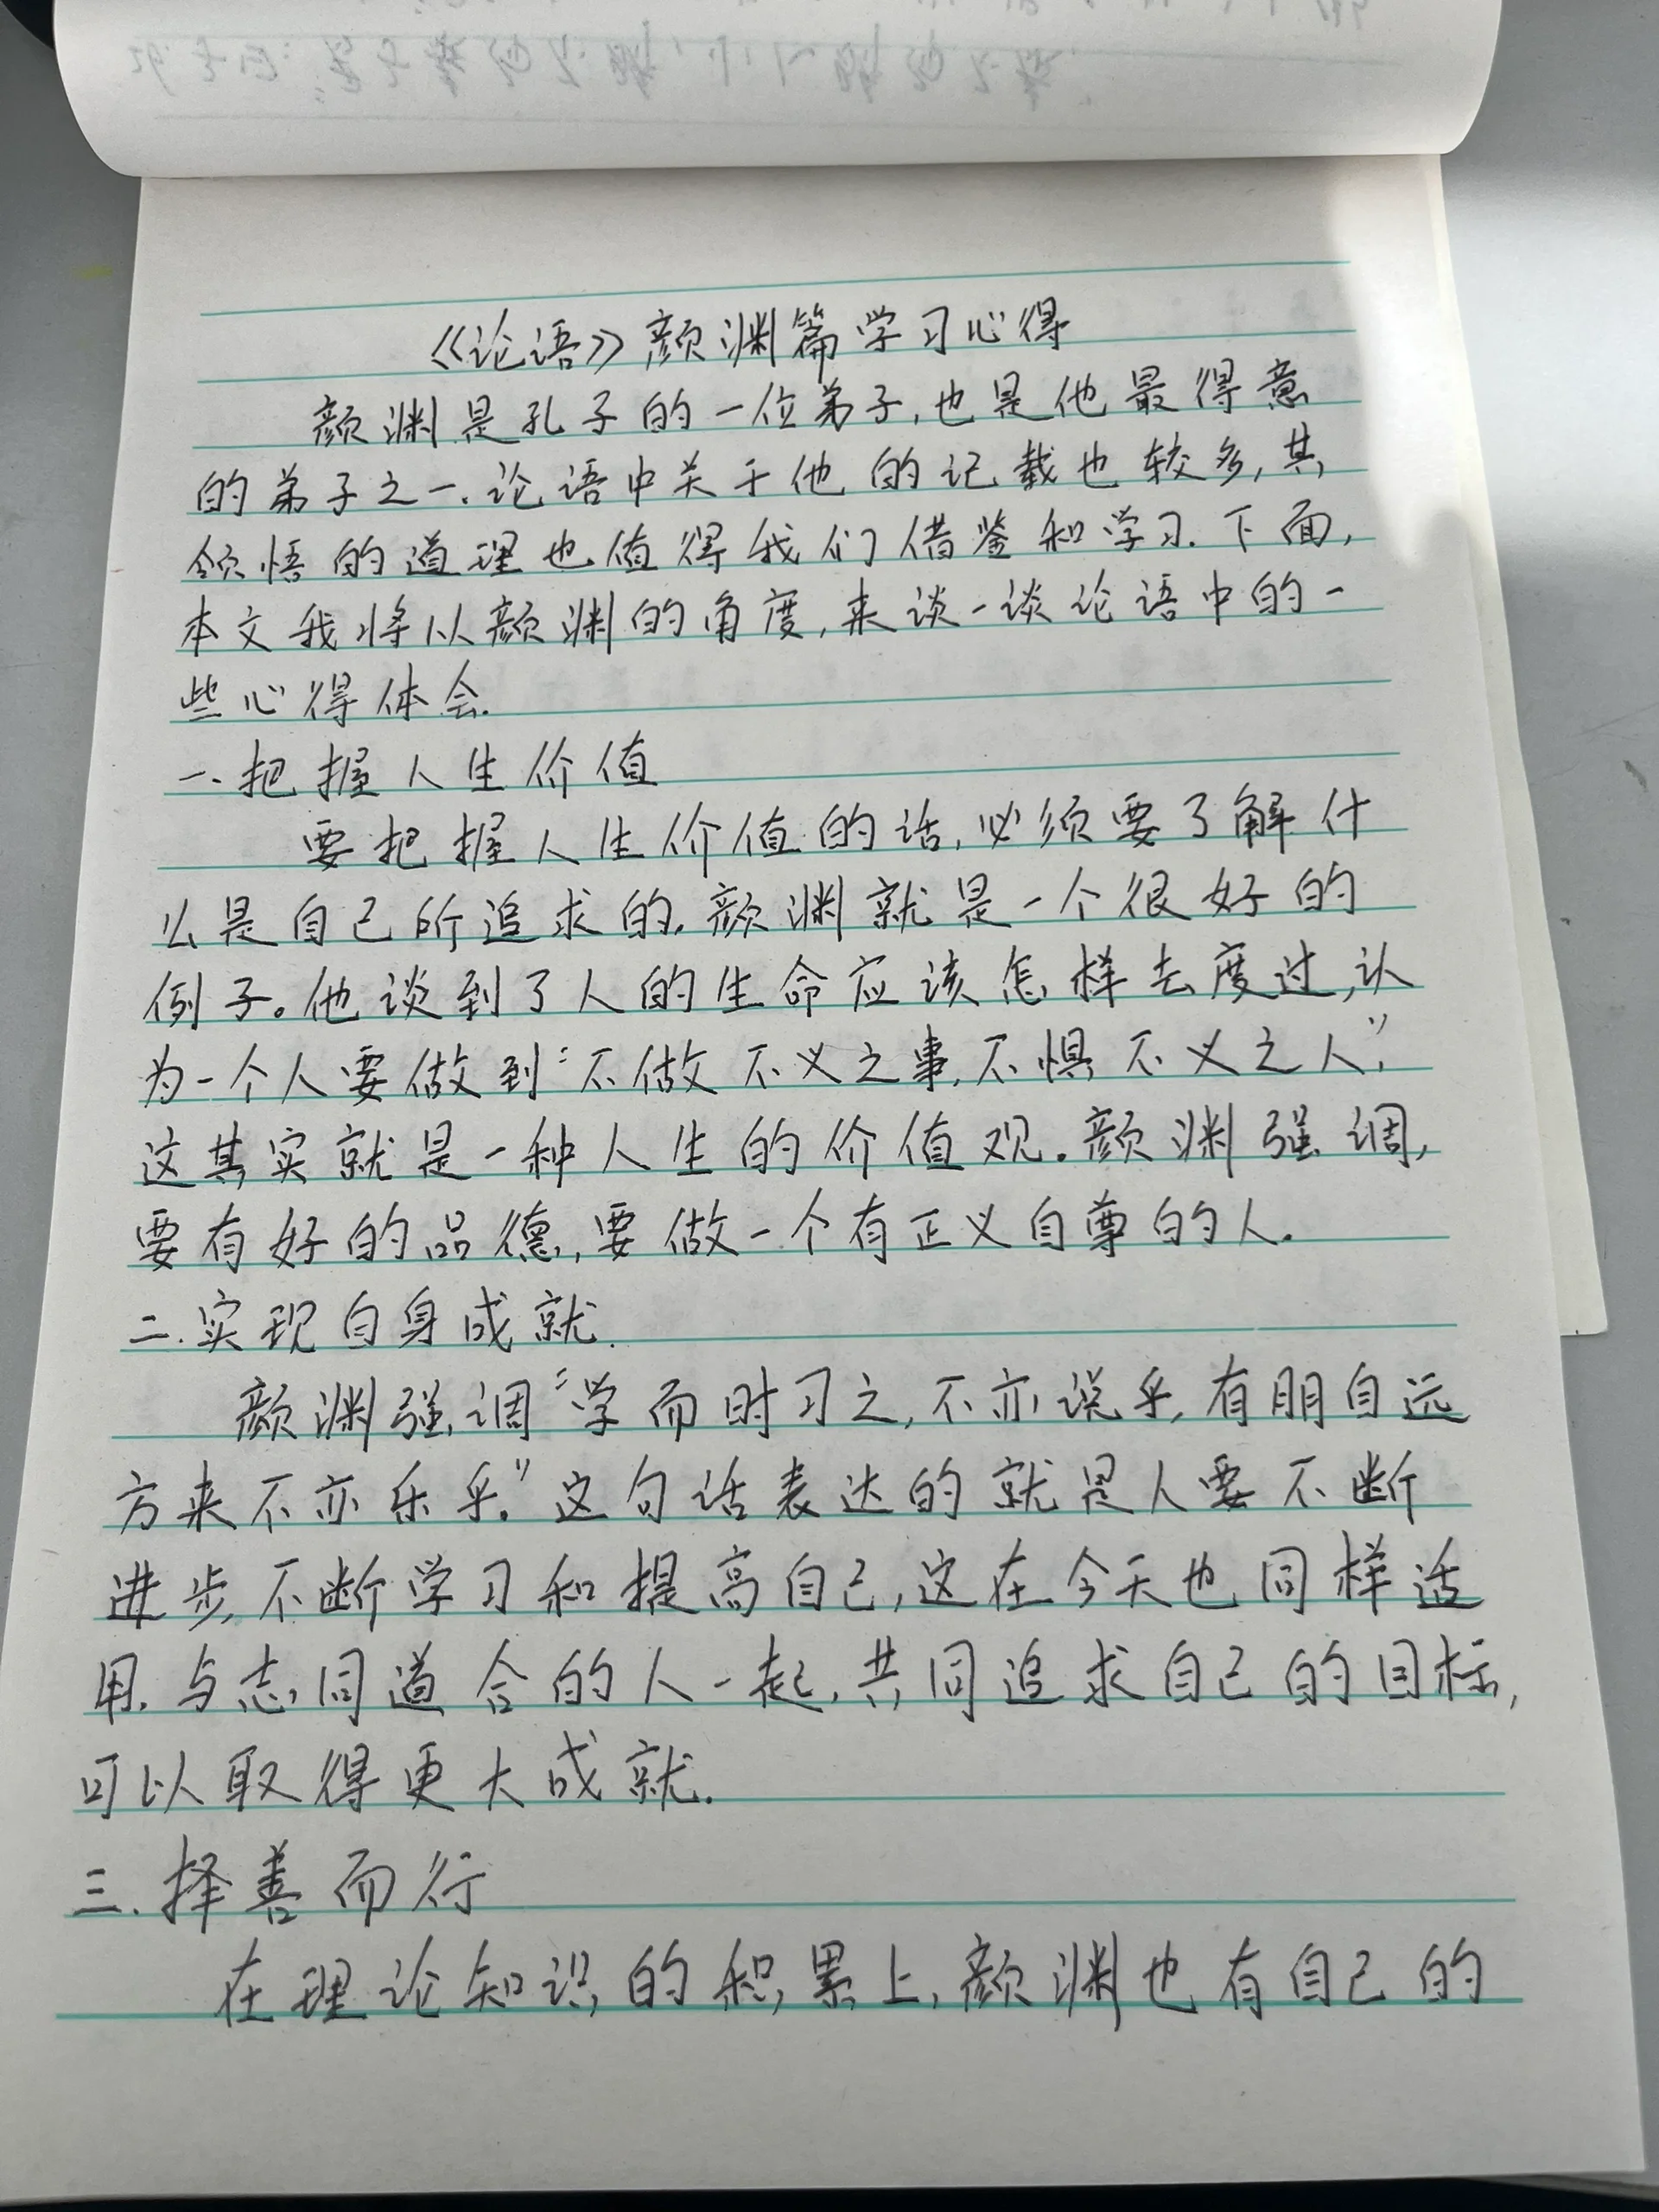 《论语》颜渊篇学习心得
颜渊是孔子的一位弟子,也是他最得意
的弟子之一.论语中关于他的记载也较多,其
领悟的道理也值得我们借鉴和学习.下面,
本文我将以颜渊的角度,来谈一谈论语中的一
些心得体会.
一、把握人生价值
要把握人生价值的话,必须要了解什
么是自己所追求的.颜渊就是一个很好的
例子。他谈到了人的生命应该怎样去度过,认
为一个人要做到“不做不义之事,不惧不义之人”,
这其实就是一种人生的价值观.颜渊强调,
要有好的品德,要做一个有正义自尊的人.
二.实现自身成就.
颜渊强调“学而时习之,不亦说乎,有朋自远
方来不亦乐乎.”这句话表达的就是人要不断
进步,不断学习和提高自己,这在今天也同样适
用.与志同道合的人一起,共同追求自己的目标,
可以取得更大成就.
三.择善而行
在理论知识的积累上,颜渊也有自己的